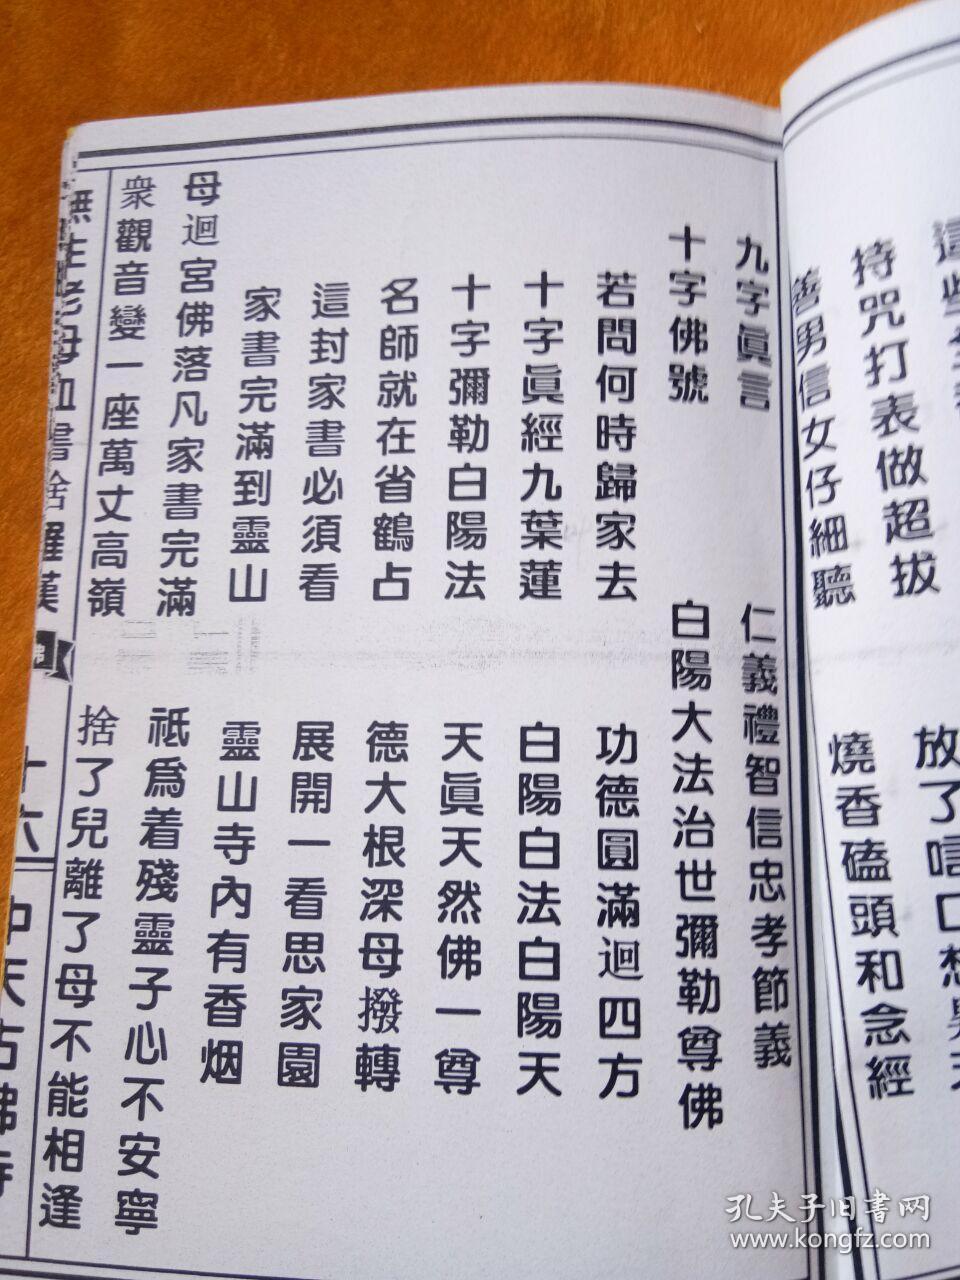 持咒打表做超拔
放了
善男信女仔細聽
燒香磕頭和念經
九字眞言
仁義禮智信忠孝節義
十字佛號
白陽大法治世彌勒尊佛
若問何時歸家去
功德圓滿迴四方
十字眞經九葉蓮
白陽白法白陽天
十字彌勒白陽法
天眞天然佛一尊
名師就在省鶴占
德大根深母撥轉
這封家書必須看
展開一看思家園
家書完滿到靈山
靈山寺內有香烟
母迴宮佛落凡家書完滿
祇爲着殘靈子心不安寧
衆觀音變一座萬丈高嶺
捨了兒離了母不能相逢
無生老母血書捨羅漢
十六
中天古佛寺
孔夫子旧书网
www.kongfz.com